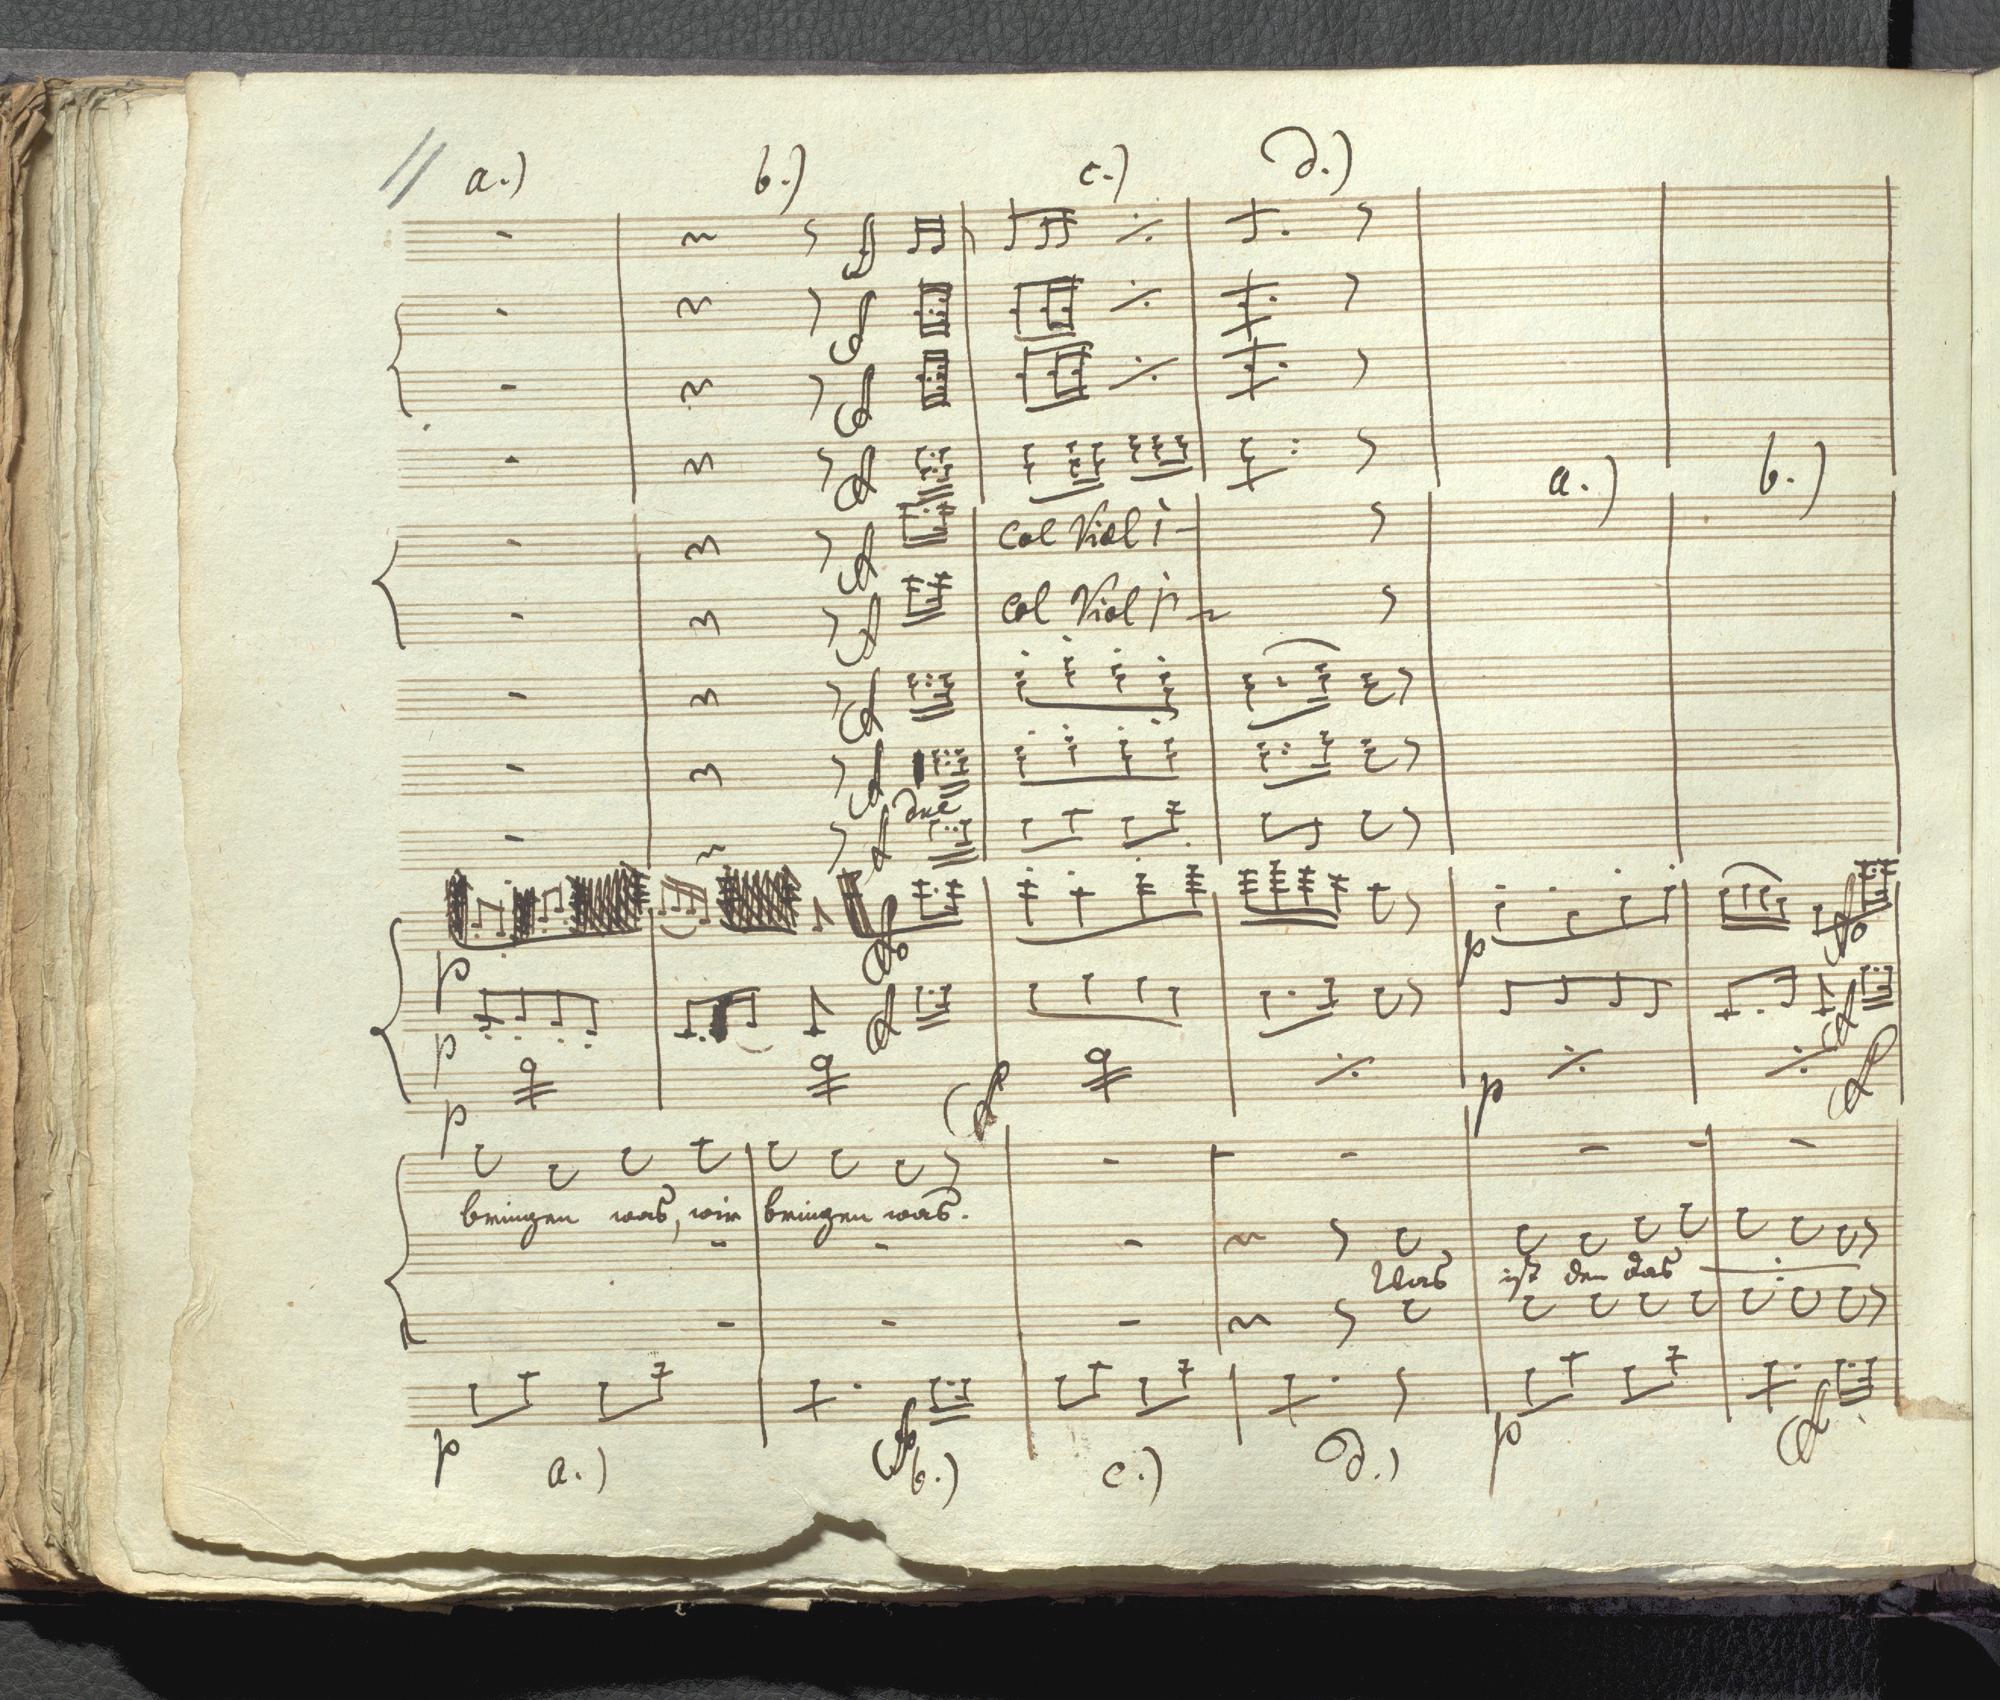 a.) b.) c.) d.)
a.) b.)
Col Viol i
Col Viol
due
p
p
p
p
p
bringen was, wir bringen was.
Was ist den das
p
p
a.) b.) c.) d.)